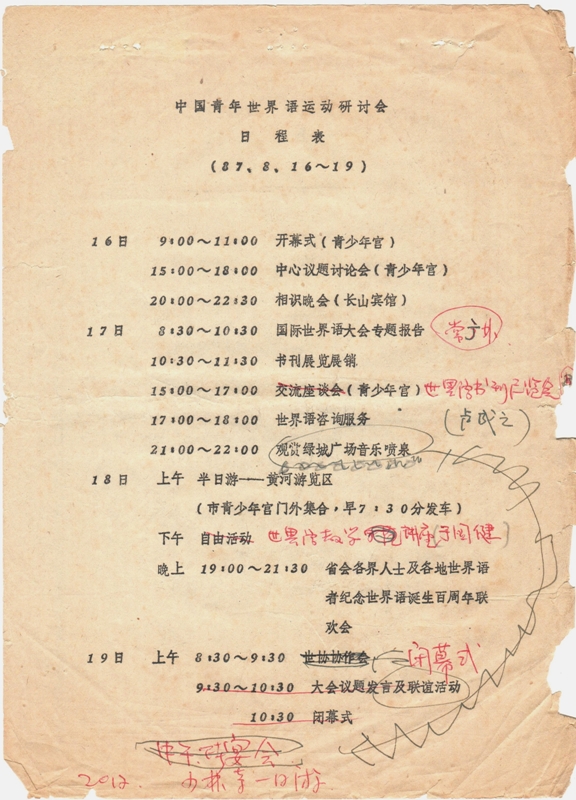 中国青年世界语运动研讨会
日 程 表
(87、8、16～19)
16日 9:00～11:00 开幕式(青少年宫)
15:00～18:00 中心议题讨论会(青少年宫)
20:00～22:30 相识晚会(长山宾馆)
17日 8:30～10:30 国际世界语大会专题报告
10:30～11:30 书刊展览展销
15:00～17:00 交流座谈会(青少年宫) 世界语书刊展览会
17:00～18:00 世界语咨询服务
21:00～22:00 观赏绿城广场音乐喷泉
18日 上午 半日游——黄河游览区
(市青少年宫门外集合,早7:30分发车)
下午 自由活动 世界语教学 讲座(于国健)
晚上 19:00～21:30 省会各界人士及各地世界语
者纪念世界语诞生百周年联
欢会
19日 上午 8:30～9:30 世协协作会 闭幕式
9:30～10:30 大会议题发言及联谊活动
10:30 闭幕式
中午 宴会
少林寺一日游